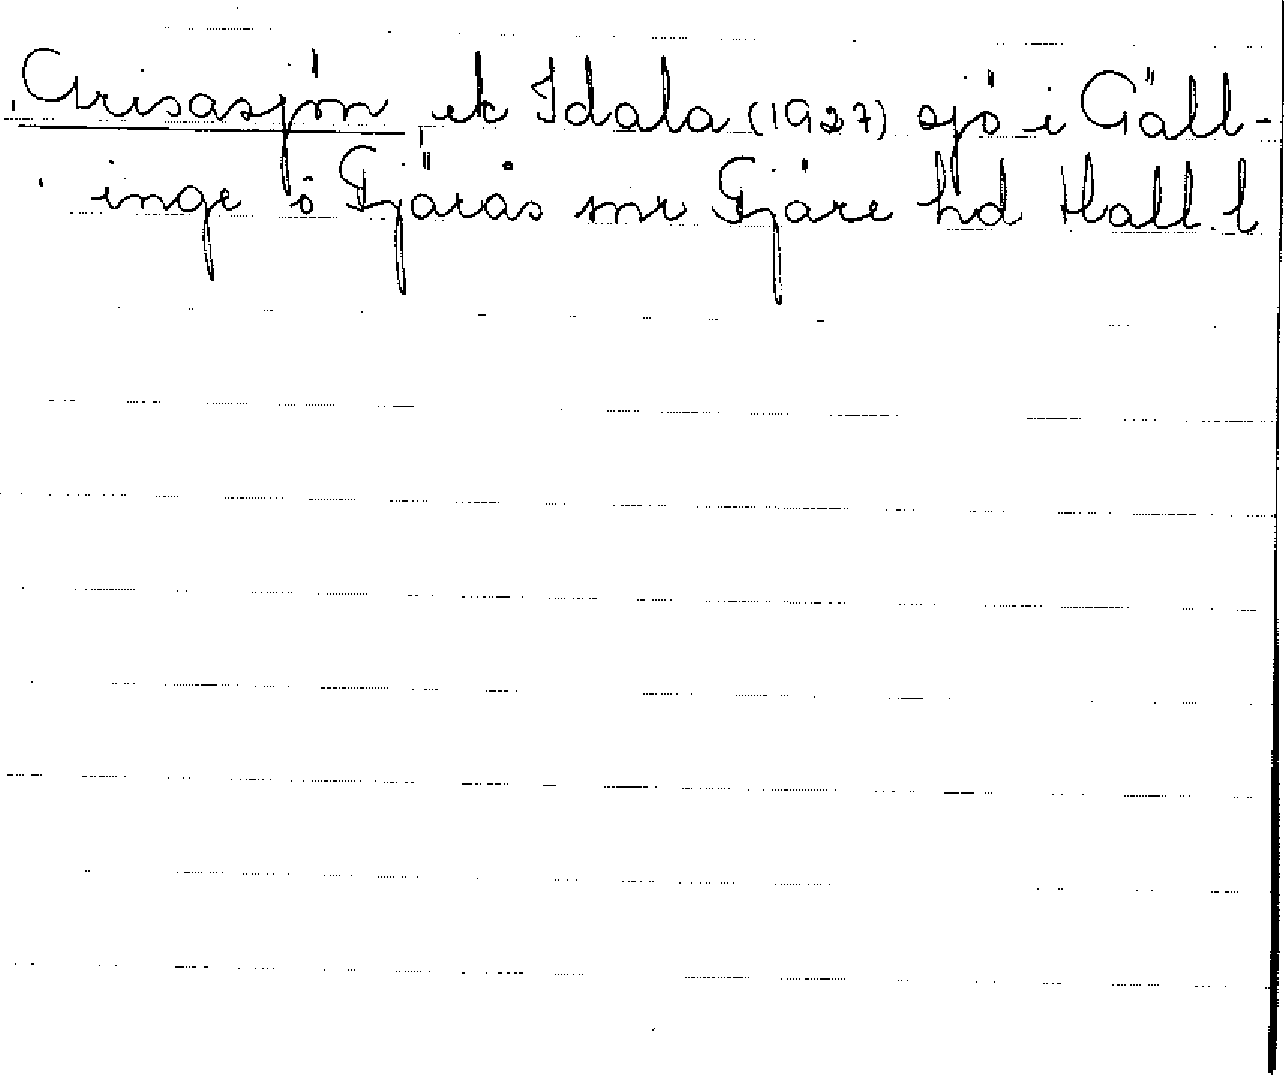 Grisasjön ek Idala (1927) sjö i Gäll-
inge o Fjärås snr Fjäre hd Hall. l